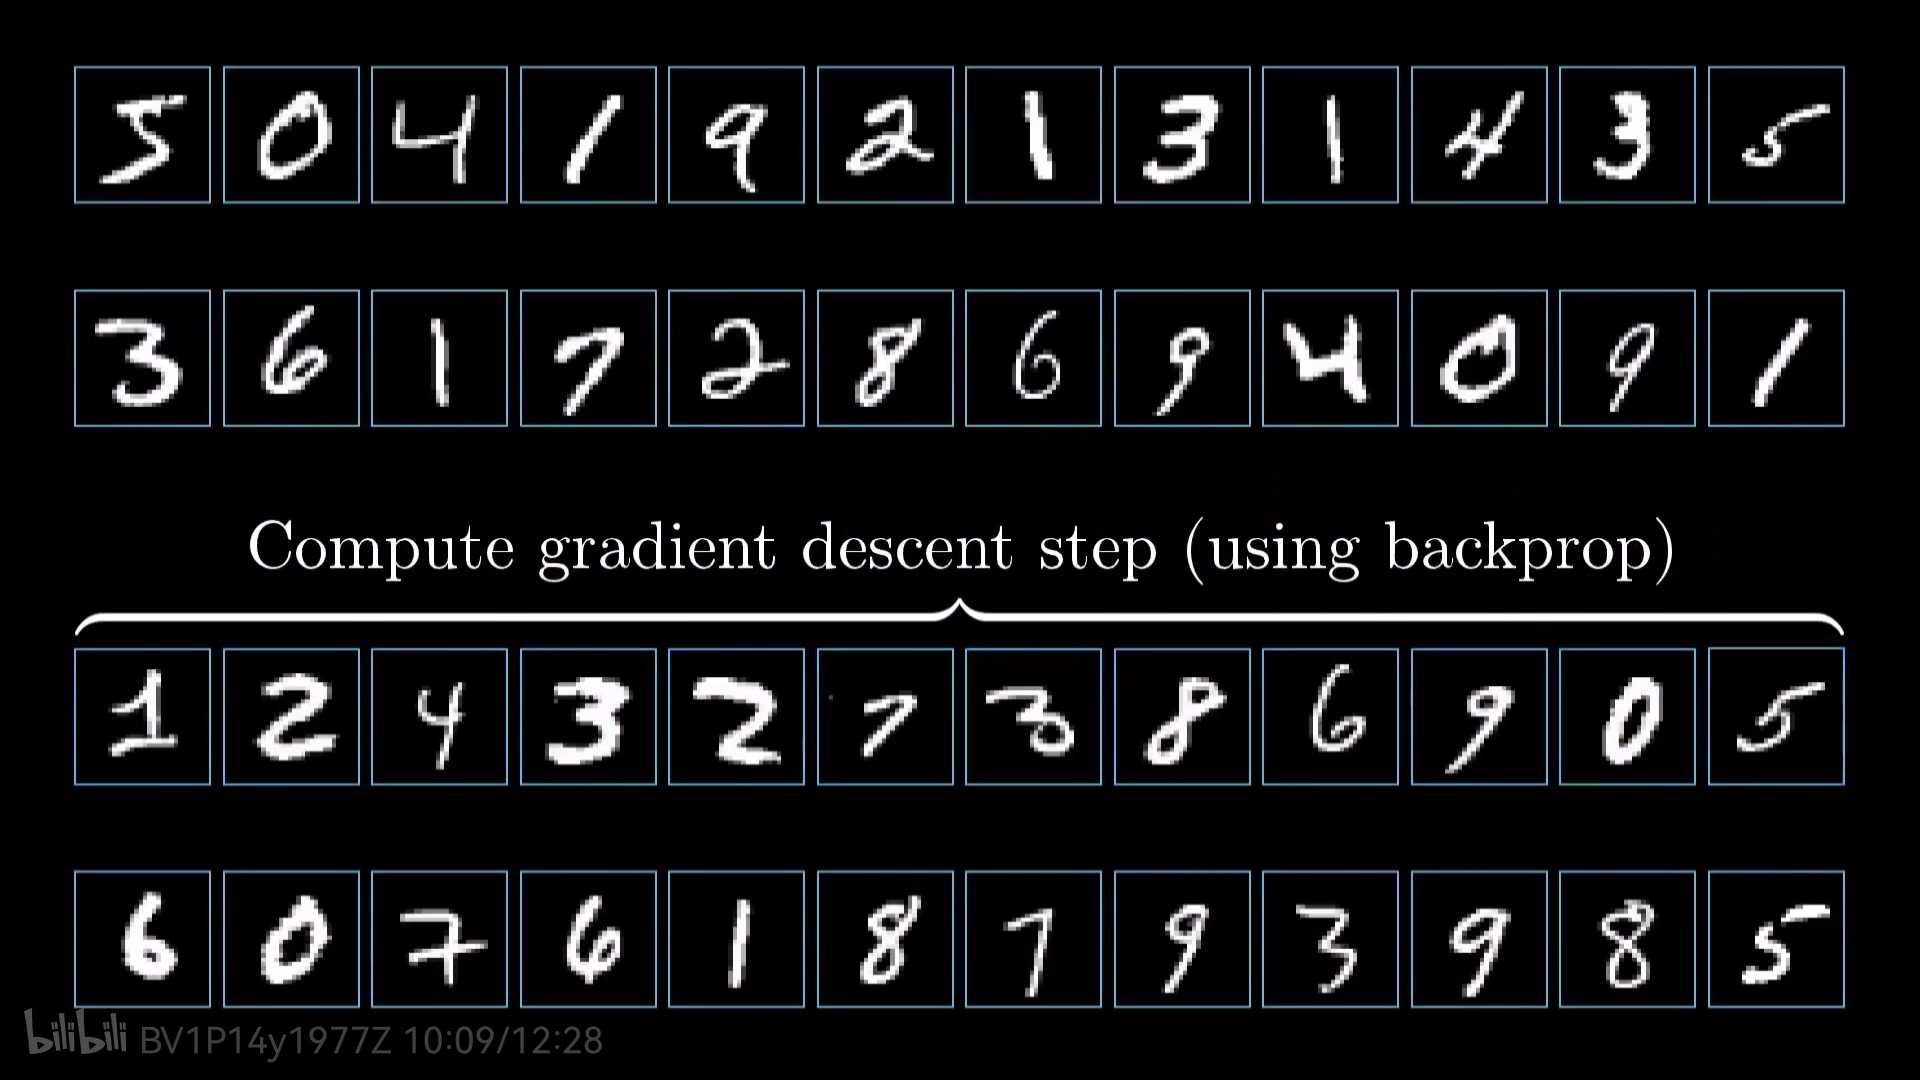 5 0 4 1 9 2 1 3 1 4 3 5
3 6 1 7 2 8 6 9 4 0 9 1
Compute gradient descent step (using backprop)
1 2 4 3 2 7 3 8 6 9 0 5
6 0 7 6 1 8 7 9 3 9 8 5
bilibili BV1P14y1977Z 10:09/12:28